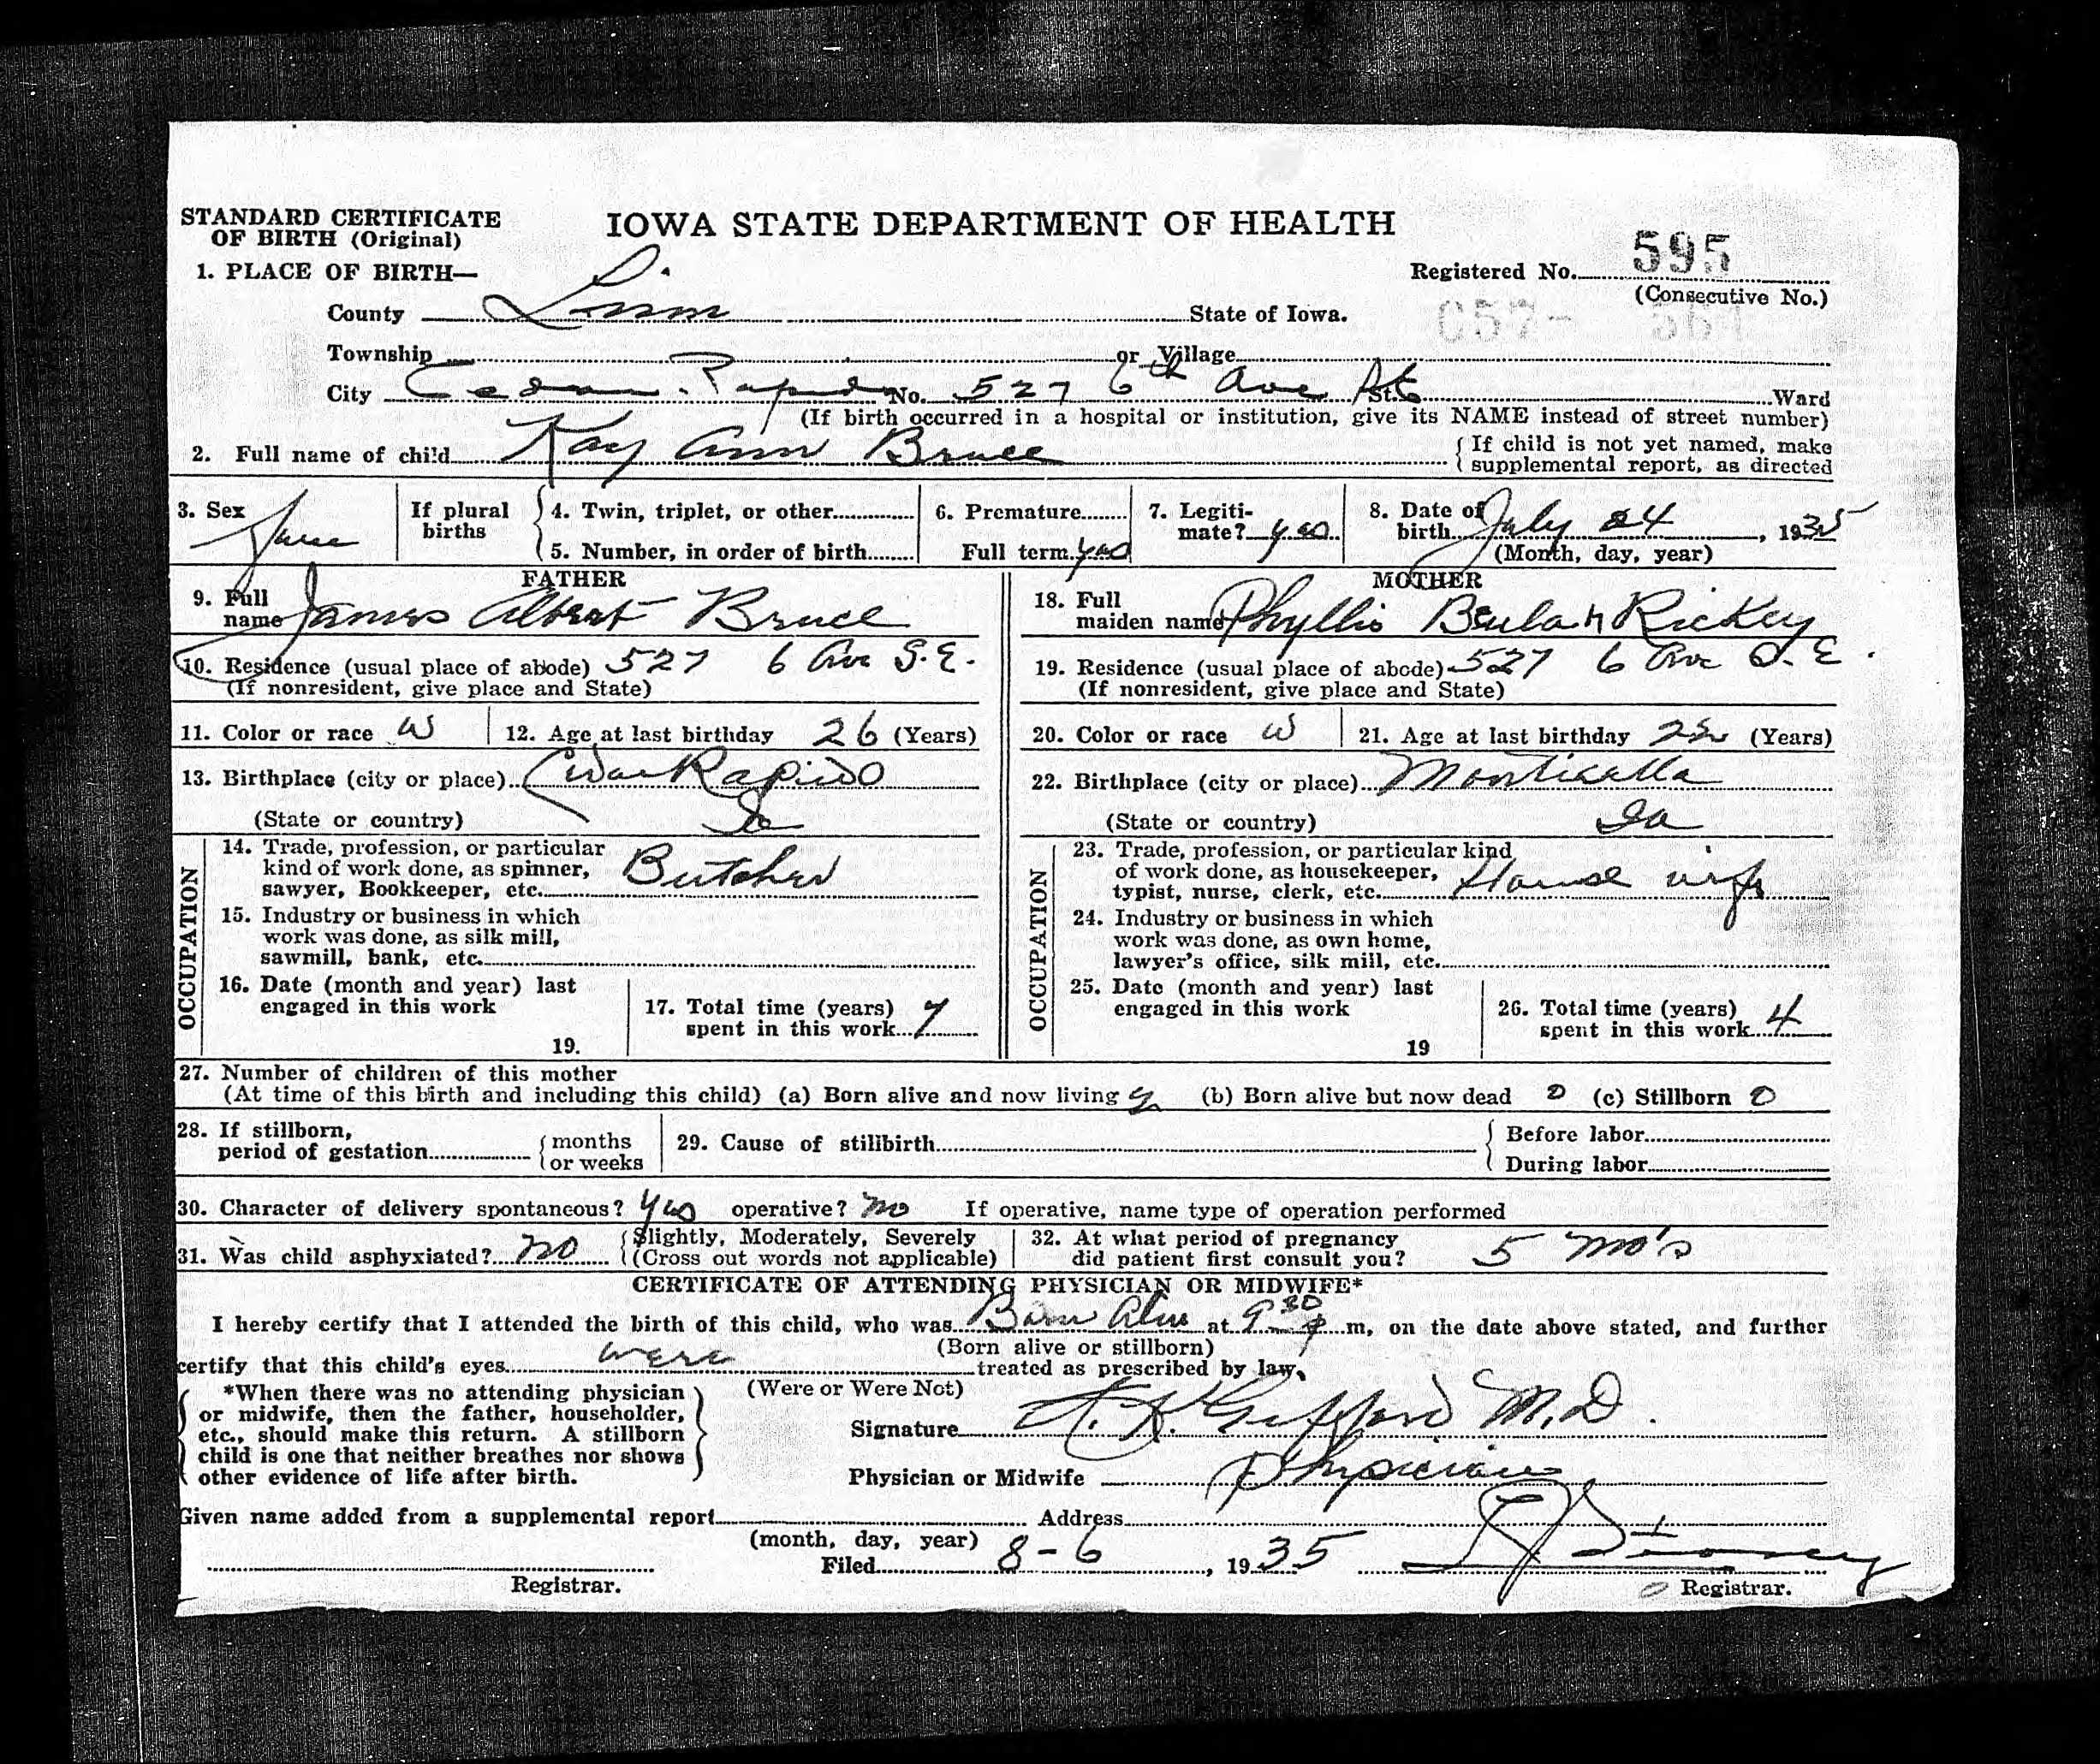 STANDARD CERTIFICATE
OF BIRTH (Original)
IOWA STATE DEPARTMENT OF HEALTH
Registered No. 595
(Consecutive No.)
1. PLACE OF BIRTH—
County Linn State of Iowa.
Township or Village
City Cedar Rapids No. 527 6th Ave St. Ward
(If birth occurred in a hospital or institution, give its NAME instead of street number)
2. Full name of child Kay Ann Bruce
{ If child is not yet named, make
supplemental report, as directed
3. Sex
If plural
births
4. Twin, triplet, or other
5. Number, in order of birth
6. Premature
Full term yes
7. Legiti-
mate? yes
8. Date of
birth July 24, 1935
(Month, day, year)
FATHER
9. Full
name James Albert Bruce
10. Residence (usual place of abode) 527 6 Ave S.E.
(If nonresident, give place and State)
11. Color or race W
12. Age at last birthday 26 (Years)
13. Birthplace (city or place) Cedar Rapids
(State or country) Ia
OCCUPATION
14. Trade, profession, or particular
kind of work done, as spinner,
sawyer, Bookkeeper, etc. Butcher
15. Industry or business in which
work was done, as silk mill,
sawmill, bank, etc.
16. Date (month and year) last
engaged in this work
19.
17. Total time (years)
spent in this work 7
MOTHER
18. Full
maiden name Phyllis Beulah Rickey
19. Residence (usual place of abode) 527 6 Ave S.E.
(If nonresident, give place and State)
20. Color or race W
21. Age at last birthday 22 (Years)
22. Birthplace (city or place) Monticello
(State or country) Ia
OCCUPATION
23. Trade, profession, or particular kind
of work done, as housekeeper,
typist, nurse, clerk, etc. House wife
24. Industry or business in which
work was done, as own home,
lawyer's office, silk mill, etc.
25. Date (month and year) last
engaged in this work
19
26. Total time (years)
spent in this work 4
27. Number of children of this mother
(At time of this birth and including this child) (a) Born alive and now living (b) Born alive but now dead 0 (c) Stillborn 0
28. If stillborn,
period of gestation { months
or weeks
29. Cause of stillbirth
{ Before labor
During labor
30. Character of delivery spontaneous? yes operative? no If operative, name type of operation performed
31. Was child asphyxiated? no { Slightly, Moderately, Severely
(Cross out words not applicable)
32. At what period of pregnancy
did patient first consult you? 5 mo's
CERTIFICATE OF ATTENDING PHYSICIAN OR MIDWIFE*
I hereby certify that I attended the birth of this child, who was Born Alive at 9 30 P m, on the date above stated, and further
(Born alive or stillborn)
certify that this child's eyes were treated as prescribed by law.
(Were or Were Not)
*When there was no attending physician
or midwife, then the father, householder,
etc., should make this return. A stillborn
child is one that neither breathes nor shows
other evidence of life after birth.
Signature Gifford M.D.
Physician or Midwife Physician
Given name added from a supplemental report Address
(month, day, year)
Filed 8-6, 1935
Registrar.
Registrar.